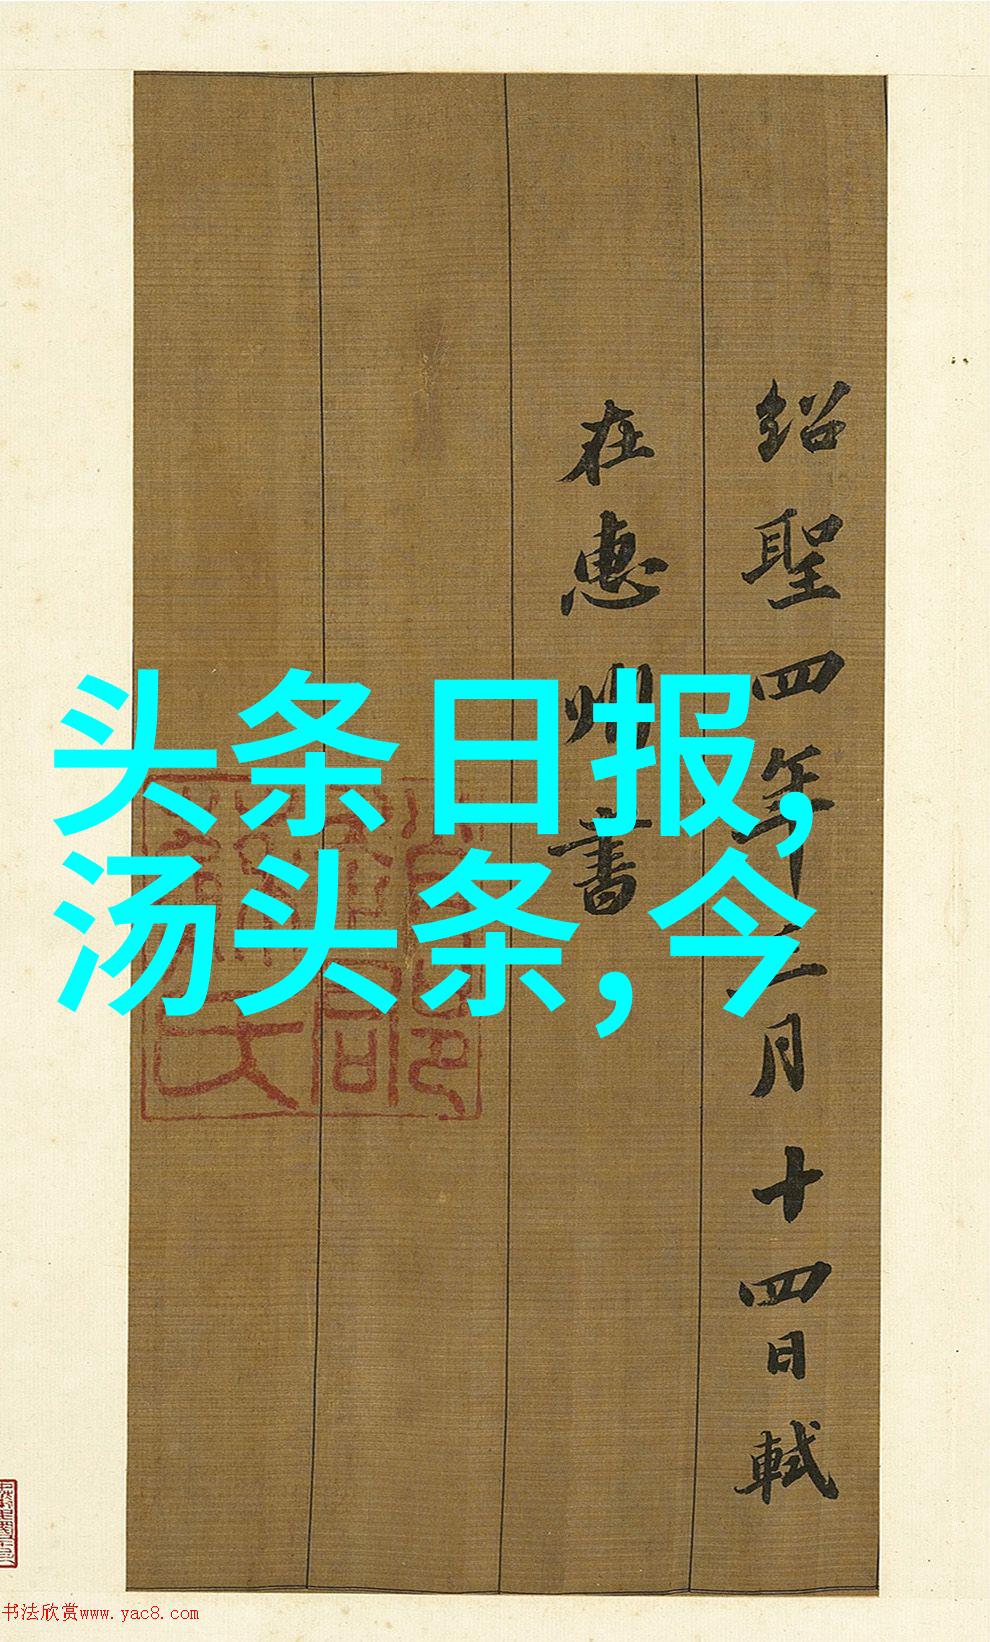 紹聖四年二月十四日軾
在惠州書
头条日报,
汤头条,今
书法欣赏www.yac8.com